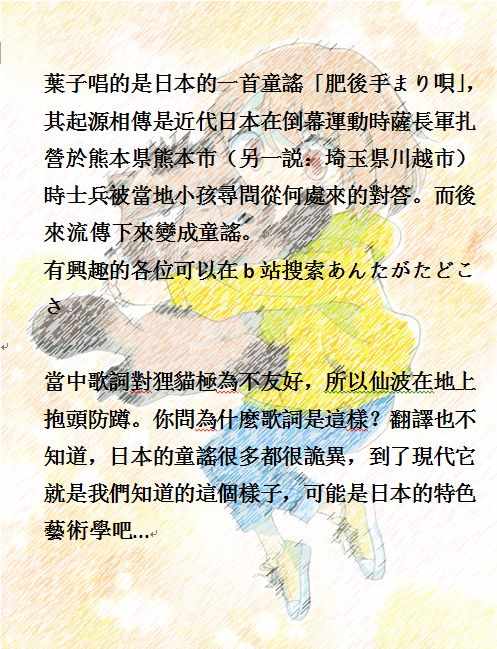 葉子唱的是日本的一首童謠「肥後手まり唄」,
其起源相傳是近代日本在倒幕運動時薩長軍扎
營於熊本県熊本市（另一説：埼玉県川越市）
時士兵被當地小孩尋問從何處來的對答。而後
來流傳下來變成童謠。
有興趣的各位可以在 b 站搜索あんたがたどこ
さ
當中歌詞對狸貓極為不友好，所以仙波在地上
抱頭防蹲。你問為什麼歌詞是這樣？翻譯也不
知道，日本的童謠很多都很詭異，到了現代它
就是我們知道的這個樣子，可能是日本的特色
藝術學吧...